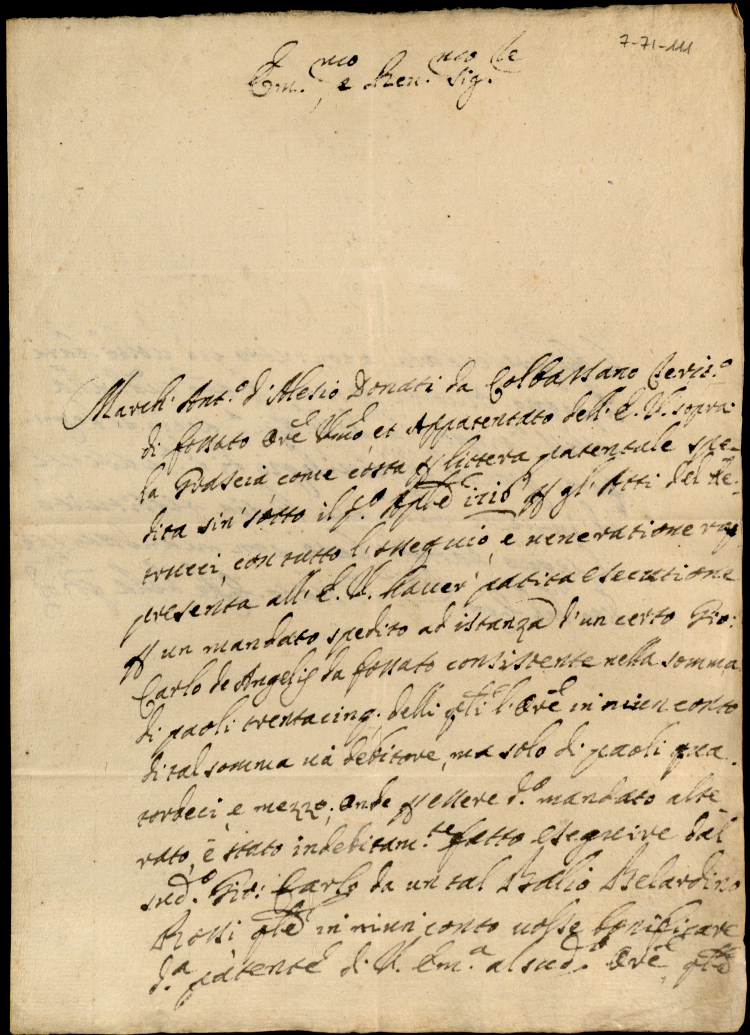 7-71-111
Em.mo e Reu.mo Sig.re
March. Ant.o d'Alesio Donati da Colbassano Territ.o
di fossato Ore Umo, et Appatentato dell'E. V. sopra
la Grascia come costa p littera patentale spe-
dita sin' sotto il p.o Aple 1710 p gl'Atti del Pe-
trucci, con tutto l'ossequio, e veneratione rap
presenta all'E. V. hauer' patita esecutione
p un mandato spedito ad istanza d'un certo Gio:
Carlo de Angelis da fossato consistente nella somma
di paoli trentacinq; delli qli l'Ore in niun conto
di tal somma uà debitore, ma solo di paoli qua
tordeci, e mezzo; onde p essere d.o mandato alte
rato, è stato indebitam.te fatto eseguire dal
sud.o Gio: Carlo da un tal Balio Belardino
Rossi qle in niun conto uolse bonificare
d.a patente di V. Em.a al sud.o Ore, qle